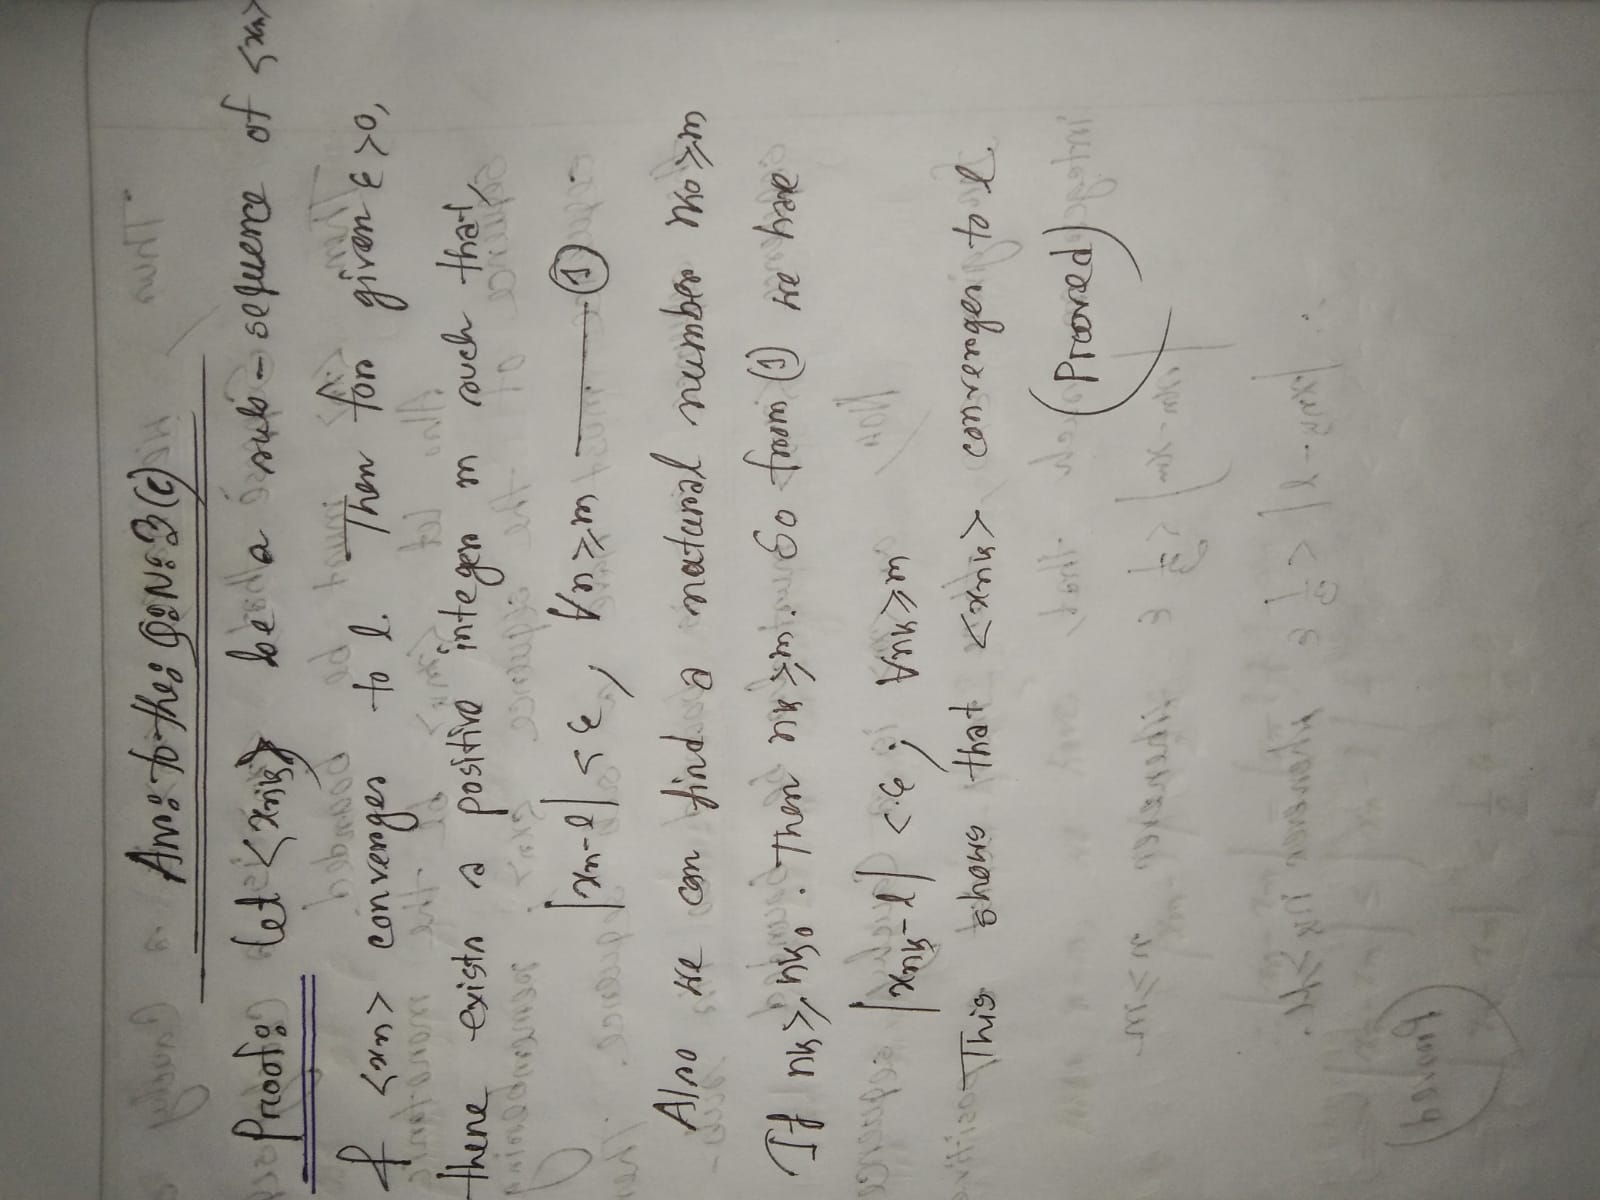 Ans: to the: Q:N: 3(c)
Proof: Let <xnk> be a sub-sequence of <xn>
If <xn> converges to l. Then for given ε>0,
there exists a positive integer m such that,
|xn-l| < ε, ∀n≥m ——— ①
Also we can find a natural number nk₀≥m
If nk≥nk₀. Then nk≥m. So from ① we have
|xnk-l| < ε, ∀nk≥m
This shows that <xnk> converges to l.
(Prooved)